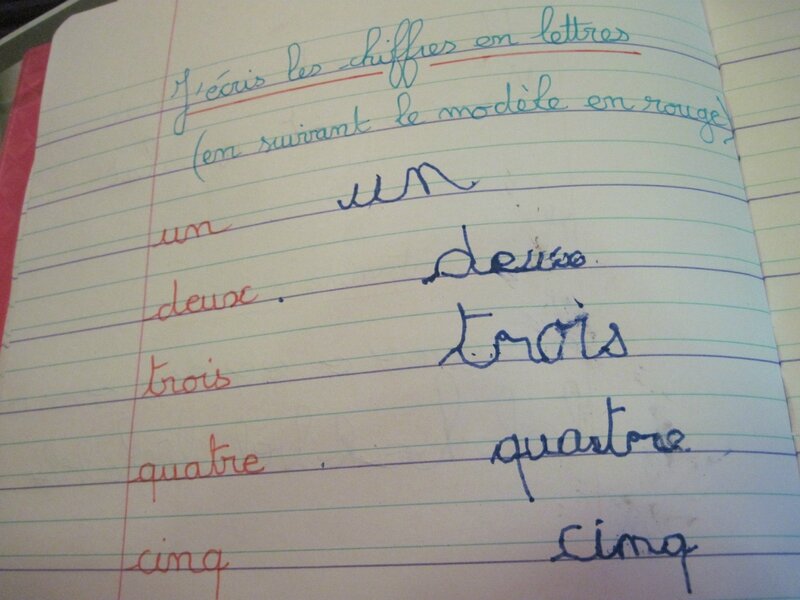 J'écris les chiffres en lettres
(en suivant le modèle en rouge)
un un
deux. deux.
trois trois
quatre . quatre
cinq cinq